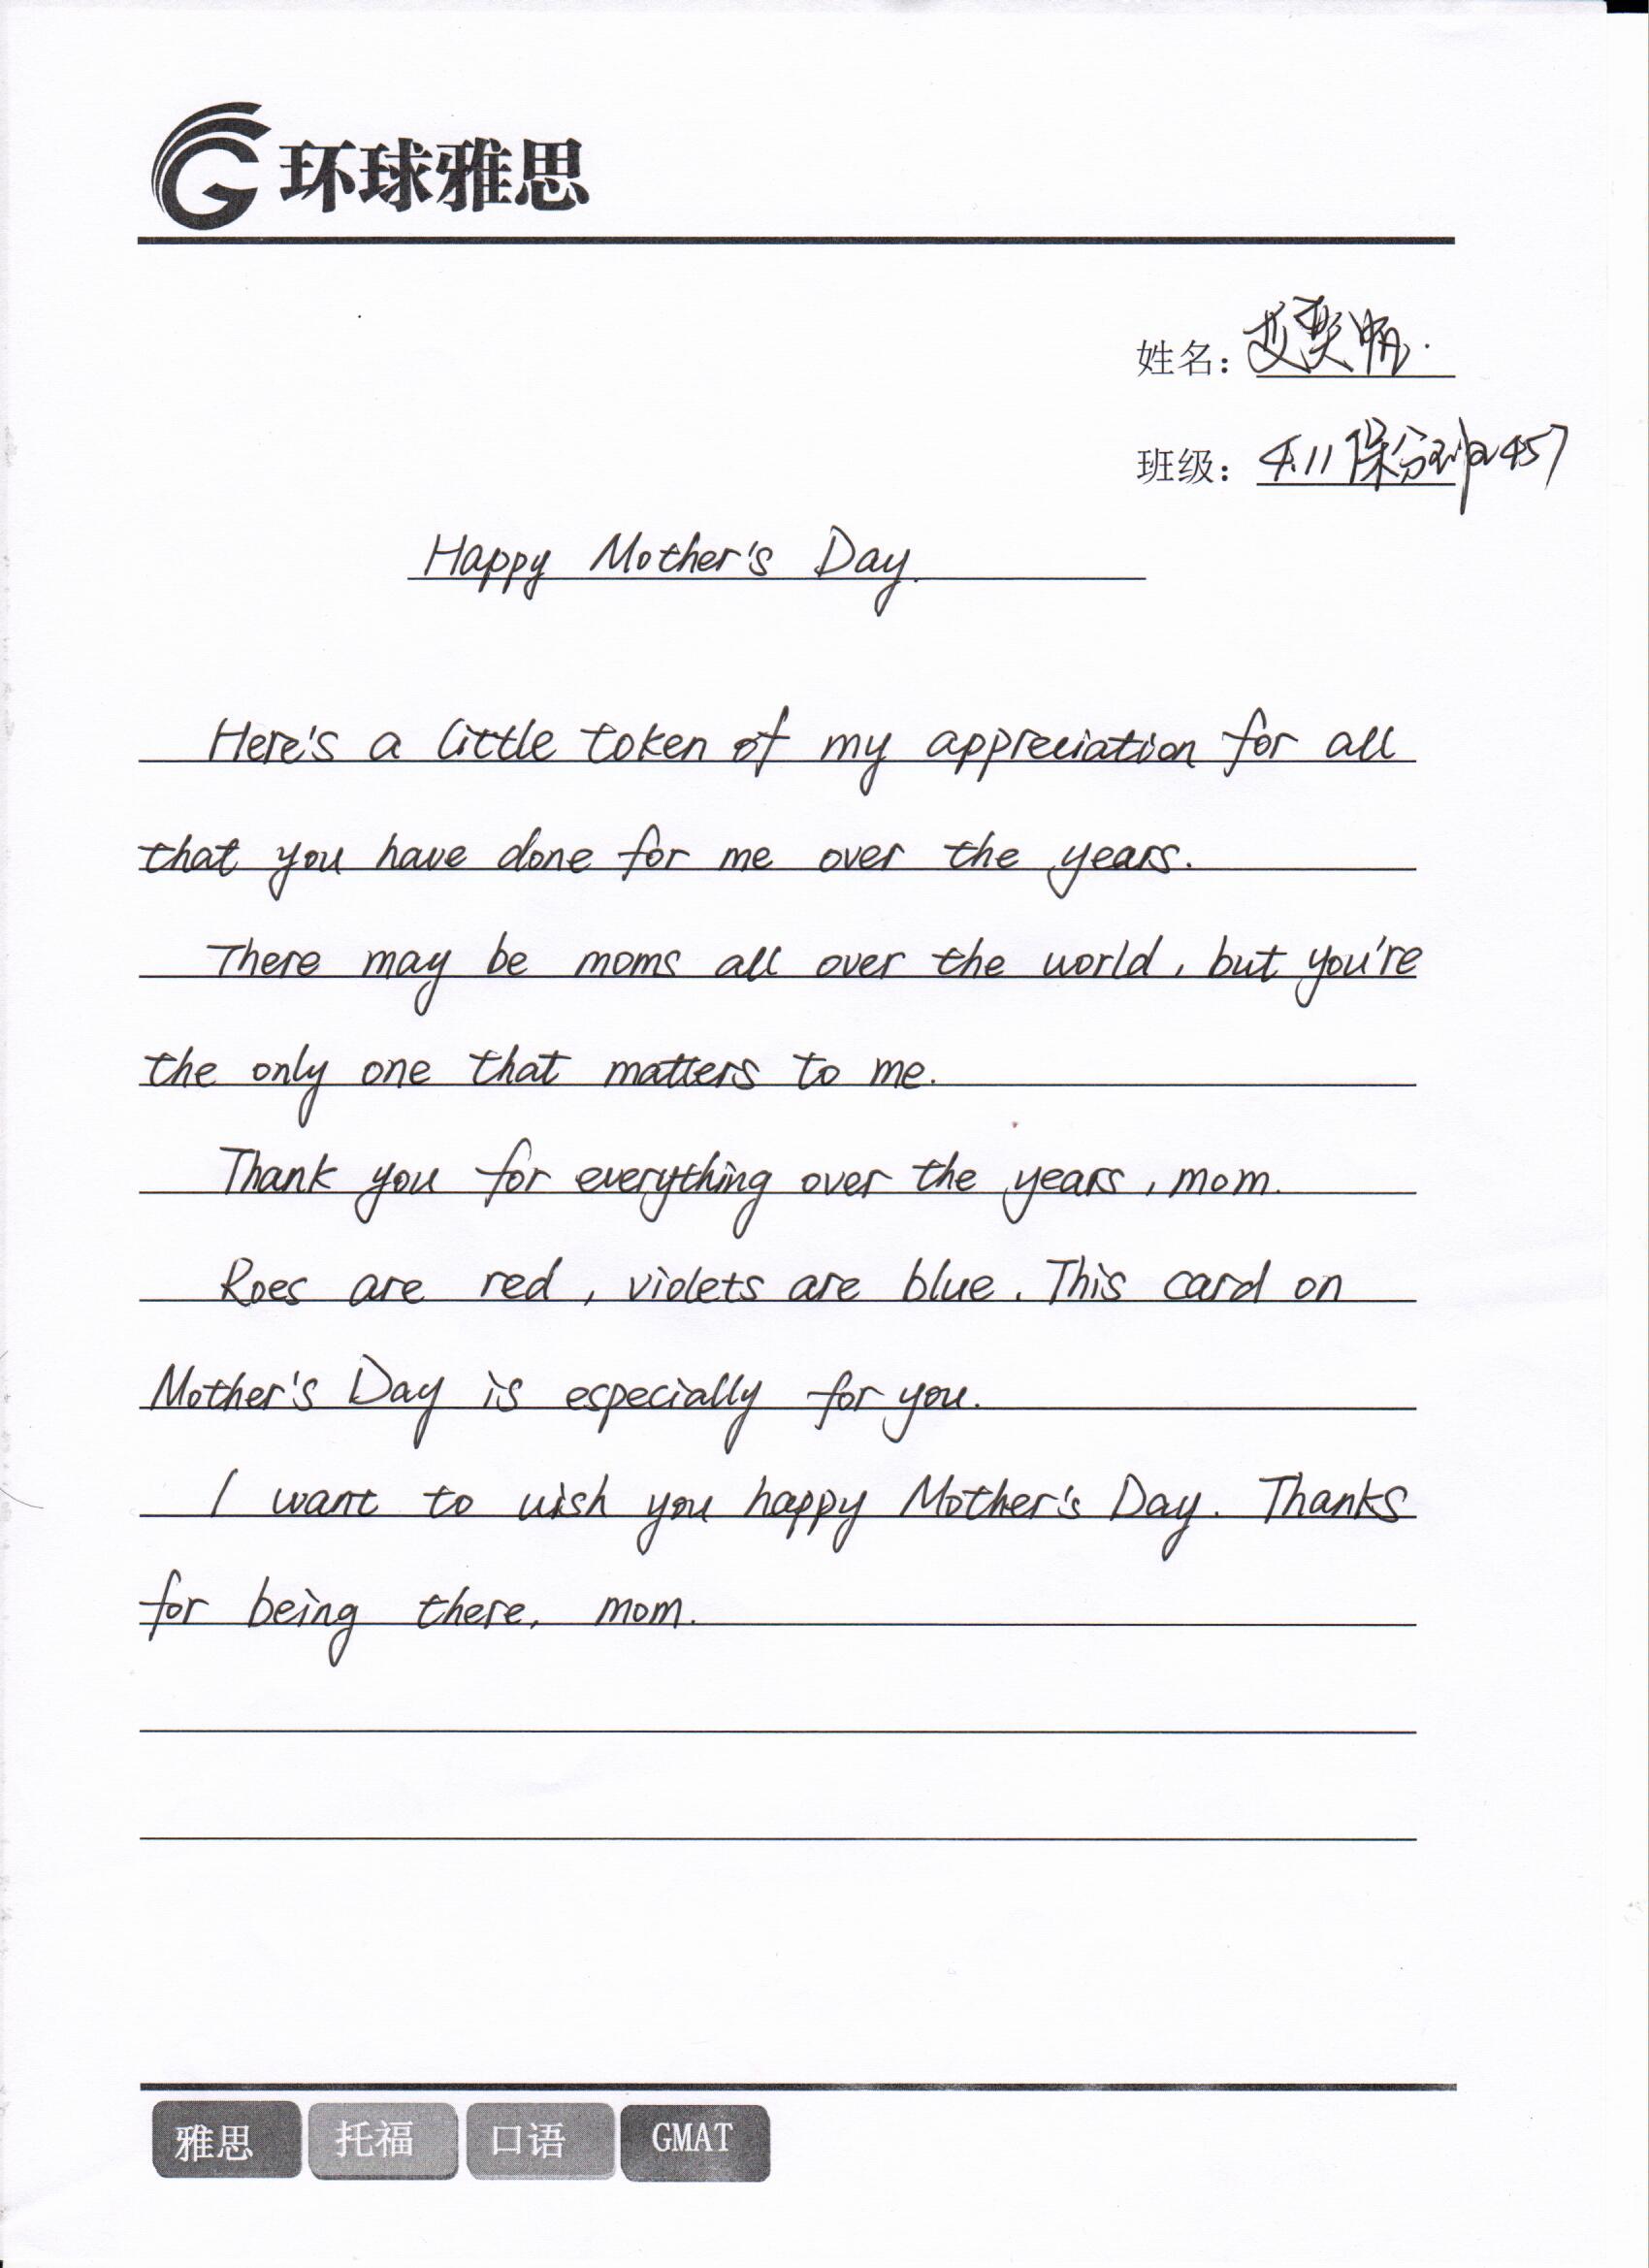 环球雅思
姓名：
班级： 4.11 保分 457
Happy Mother's Day.
Here's a little token of my appreciation for all
that you have done for me over the years.
There may be moms all over the world, but you're
the only one that matters to me.
Thank you for everything over the years, mom.
Roes are red, violets are blue. This card on
Mother's Day is especially for you.
I want to wish you happy Mother's Day. Thanks
for being there, mom.
雅思 托福 口语 GMAT